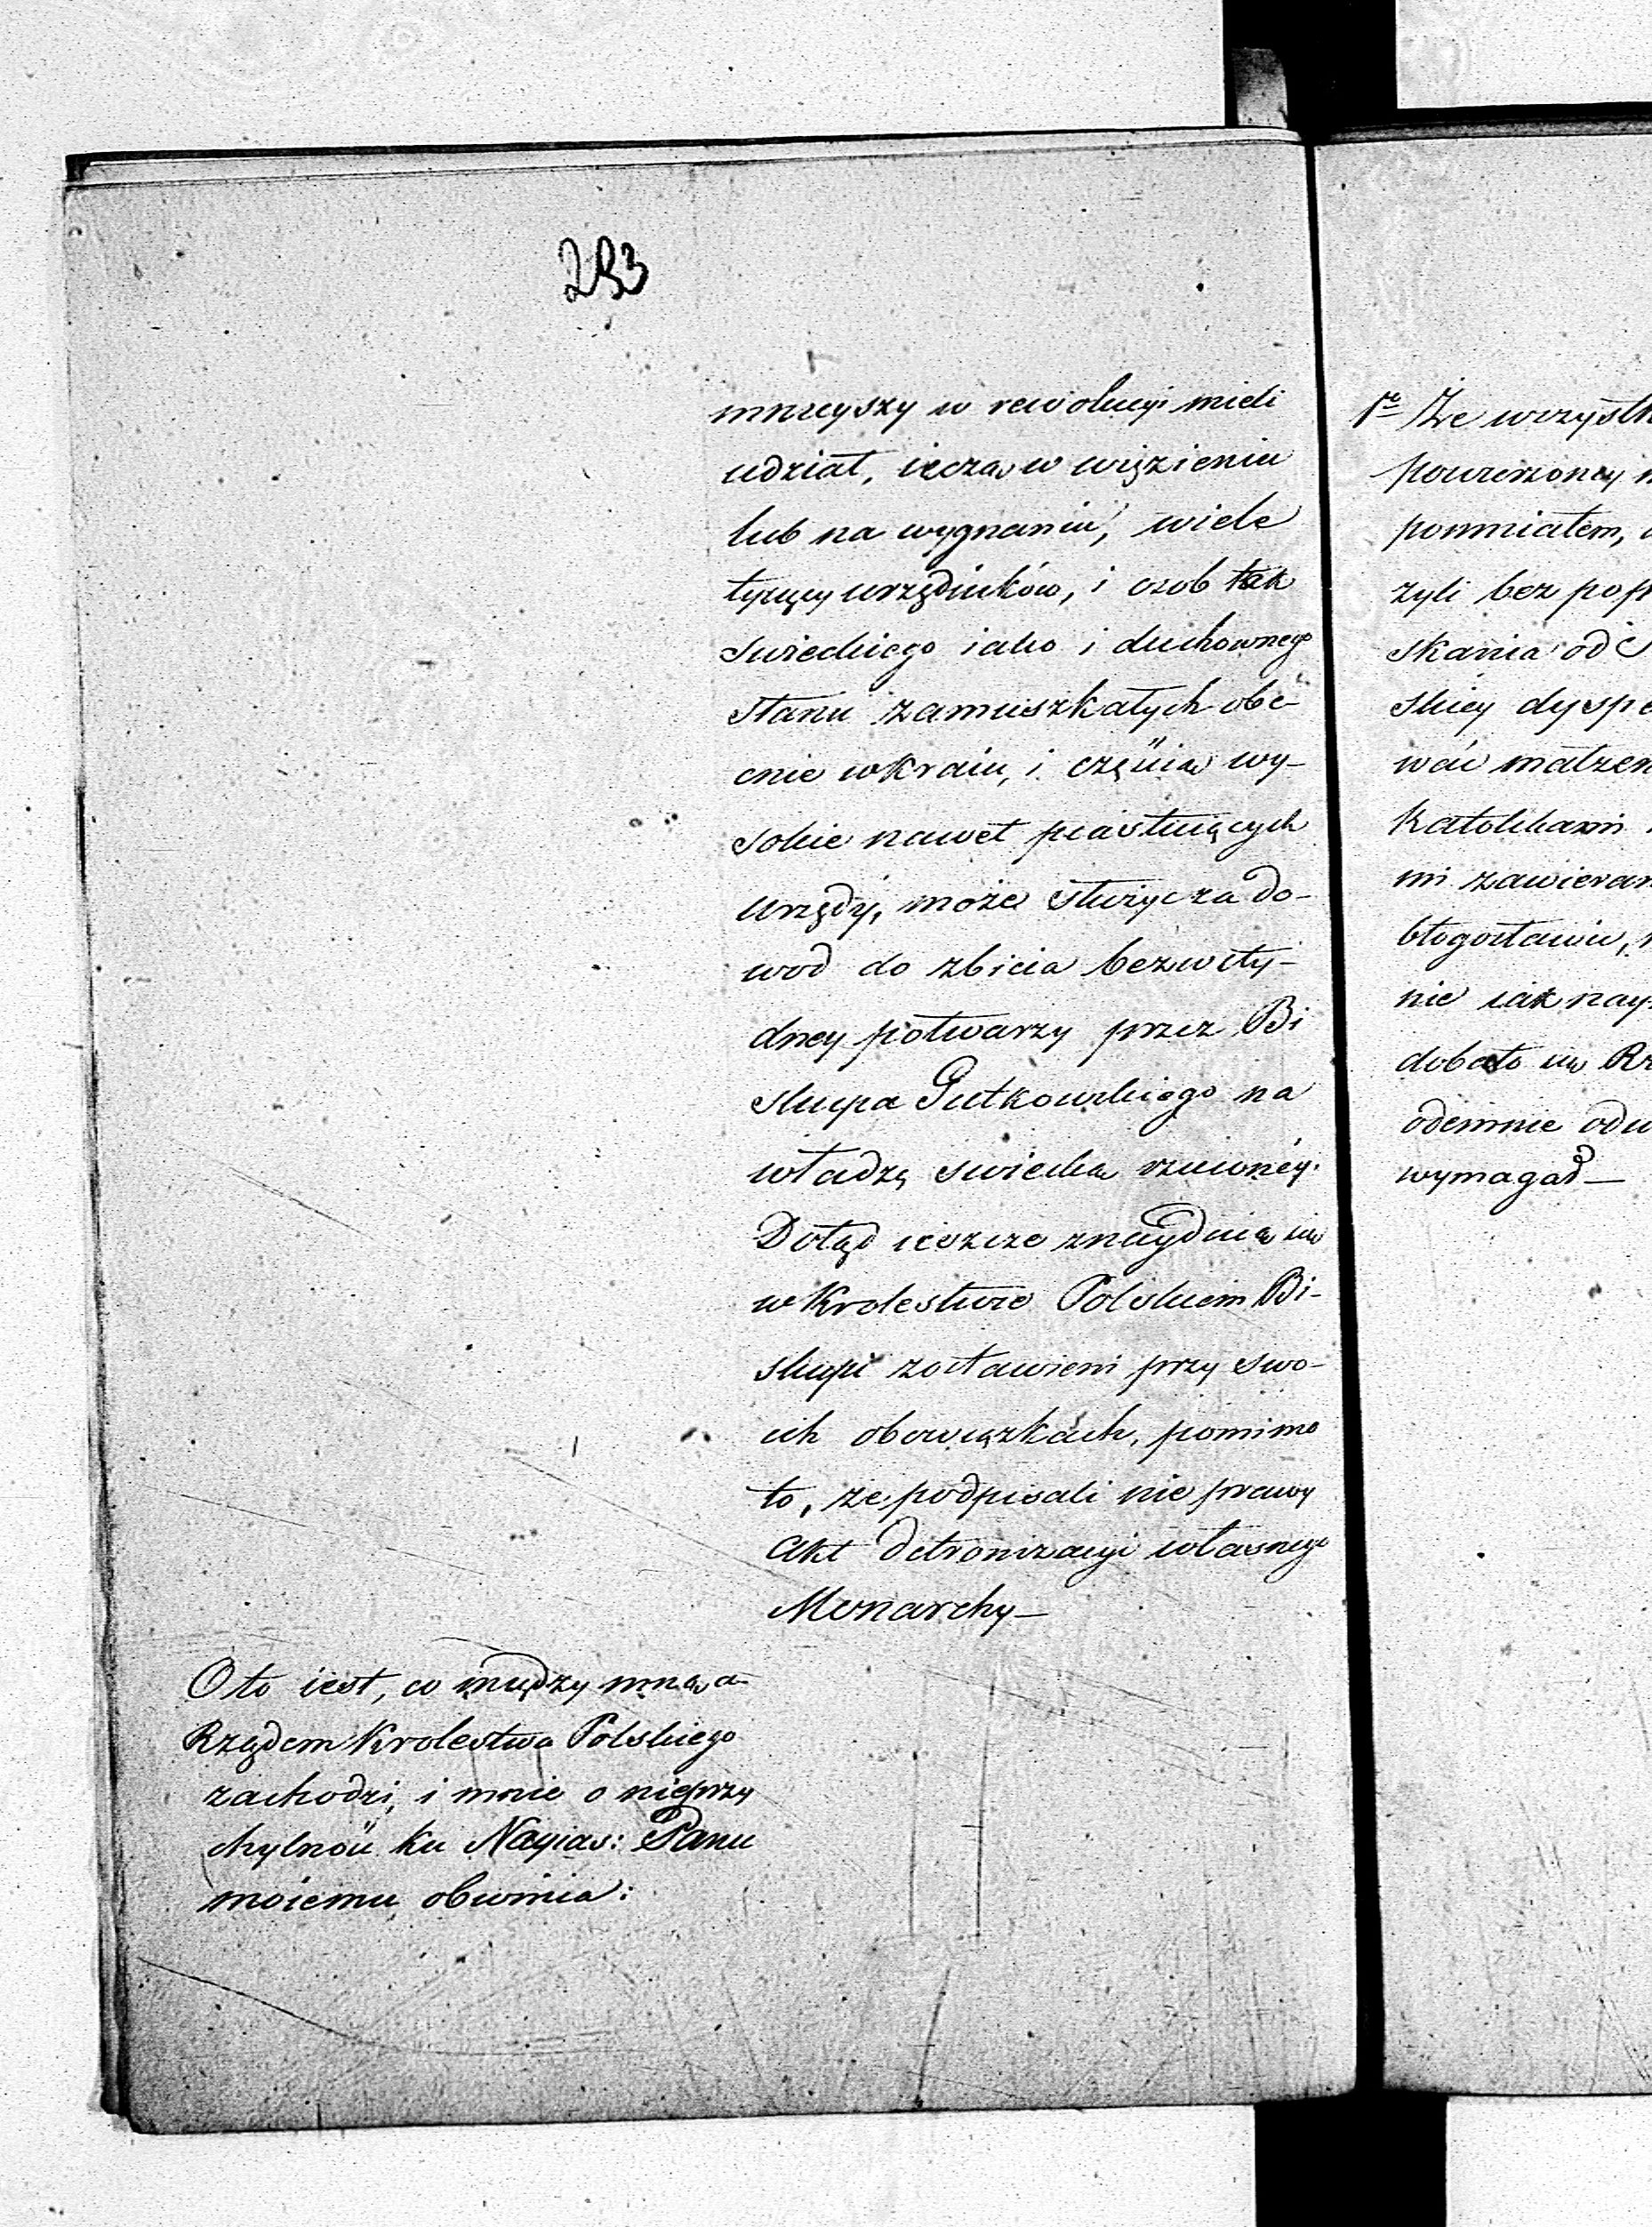 233
mnieyszy w rewolucyi mieli
udział, ięczą w więzieniu
lub na wygnaniu, wiele
tysięcy urzędników, i osob tak
swieckiego iako i duchownego
stanu zamieszkałych obe-
cnie w kraiu, i częścią wy-
sokie nawet piastuiących
urzędy, może służyć za do-
wod do zbicia bezwsty-
dney potwarzy przez Bi
skupa Gutkowskiego na
władzę swiecką rzuconéy.
Dotąd ieszcze znayduią się
w Krolestwie Polskiem Bi-
skupi zostawieni przy swo-
ich obowiązkach, pomimo
to, że podpisali nie prawy
Akt detronizacyi własnego
Monarchy —
Oto iest, co między mną a
Rządem Krolestwa Polskiego
zachodzi, i mnie o nieprzy
chylność ku Nayias: Panu
moiemu obwinia:
1e Że wszystk
powierzoney
pomniałem,
żyli bez
skania od
skiey dyspe
wać małżen
Katolikami
mi zawieran
błogosławić,
nie iak nay
dobało się Rz
odemnie odw
wymagać —